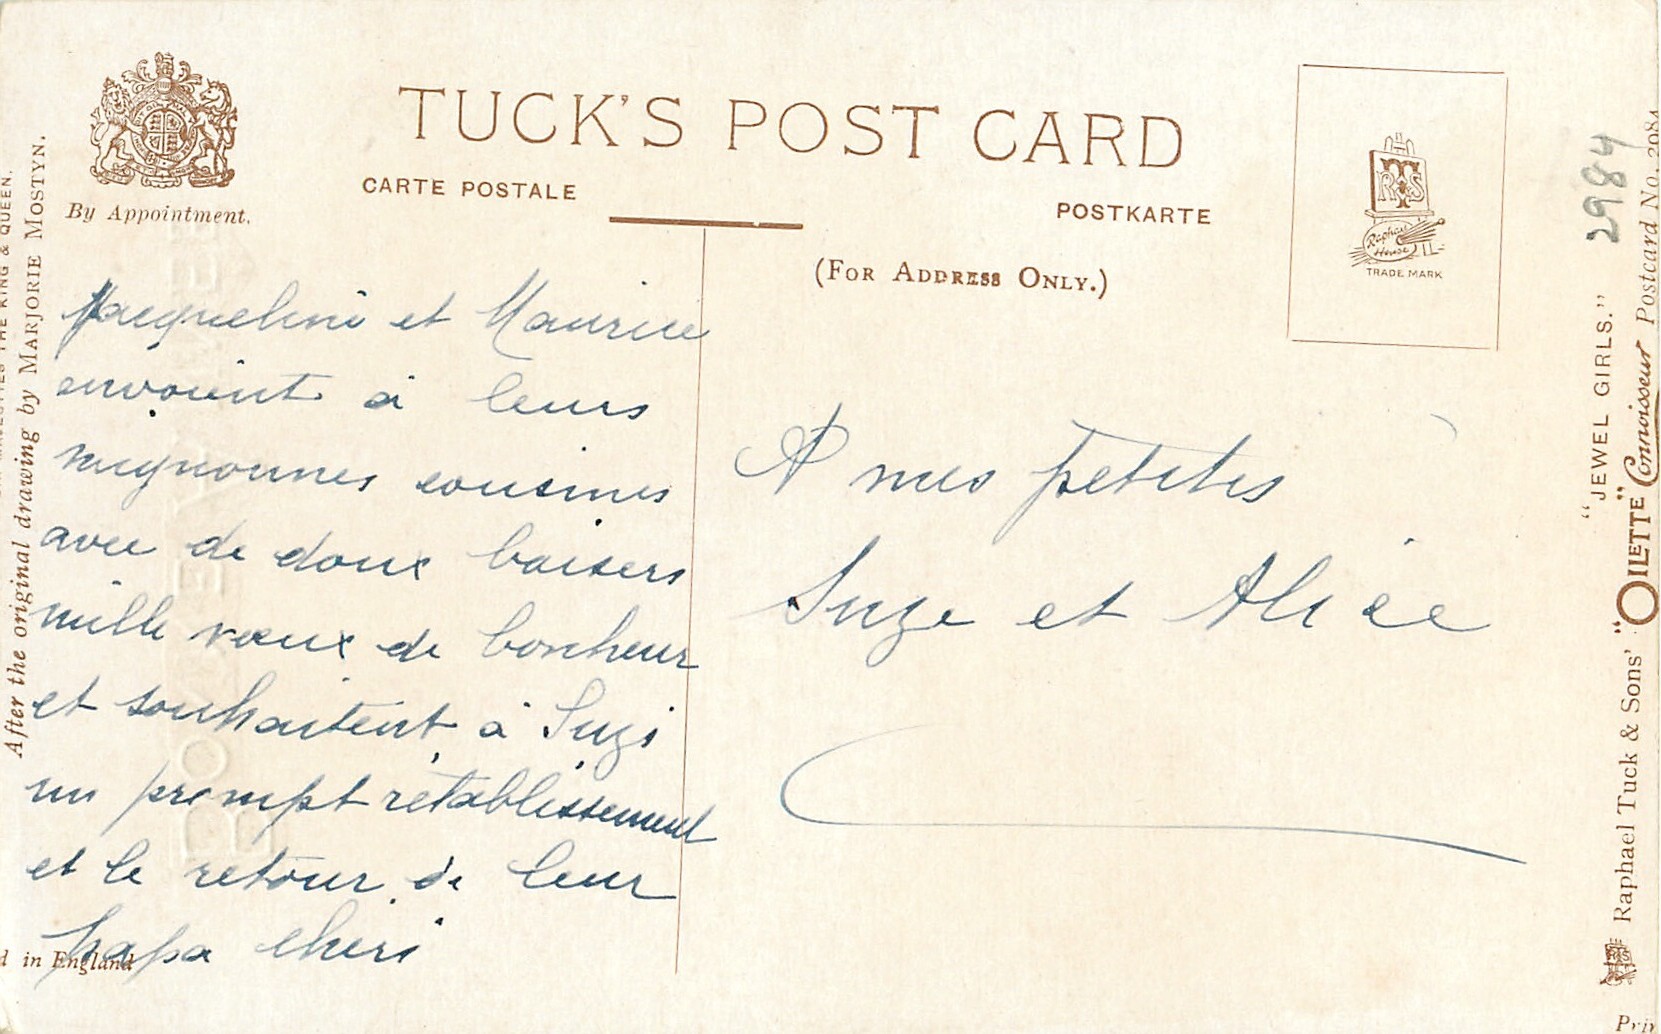 TUCK'S POST CARD
CARTE POSTALE
POSTKARTE
By Appointment.
(FOR ADDRESS ONLY.)
TRADE MARK
Raphael House
Jacqueline et Maurice
envoient à leurs
mignonnes cousines
avec de doux baisers
mille vœux de bonheur
et souhaitent à Suzi
un prompt rétablissement
et le retour de leur
papa cheri
A mes petites
Suze et Alice
THE KING & QUEEN.
After the original drawing by MARJORIE MOSTYN.
in England
2984
"JEWEL GIRLS."
Raphael Tuck & Sons' "OILETTE" Connoisseur Postcard No. 2984